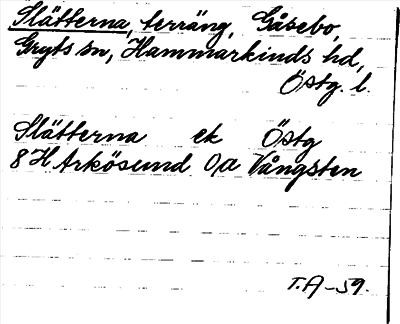 Slätterna, terräng, Gåsebo,
Gryts sn, Hammarkinds hd,
Östg. l.
Slätterna ek Östg
8 H Arkösund 0a Vångsten
T.A-59.